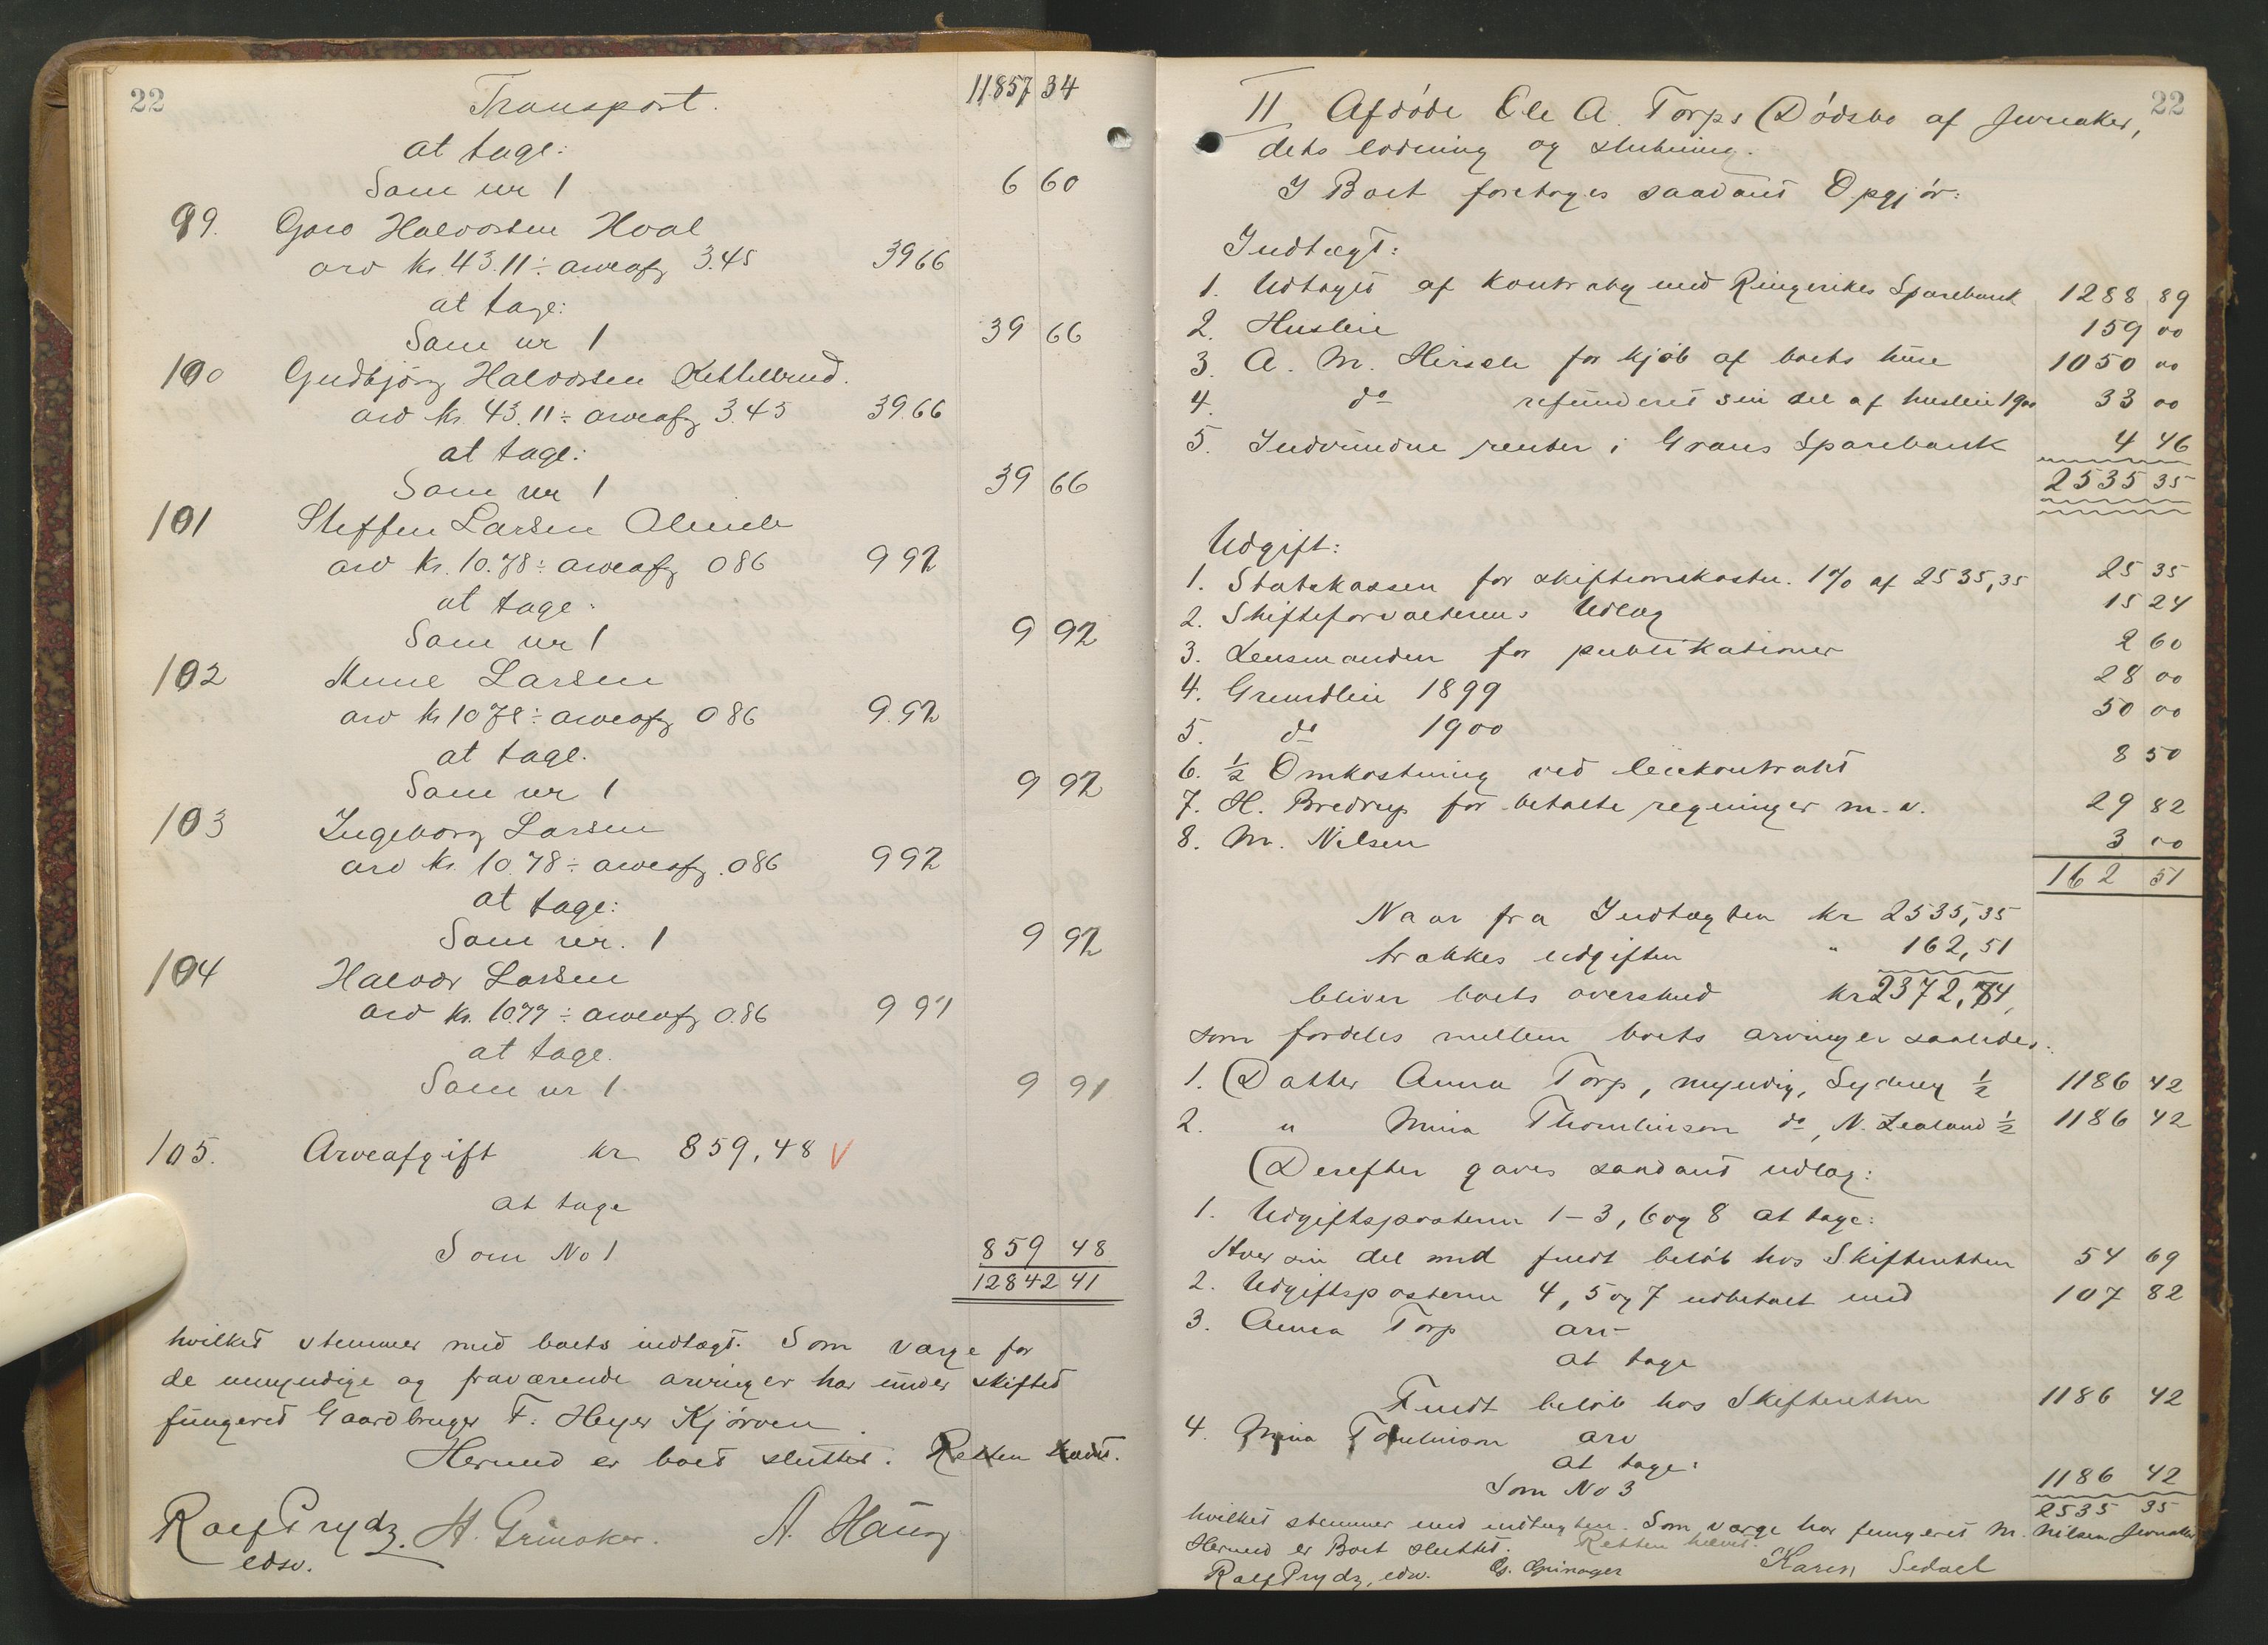 22
Transport. 11857 34
at tage:
Som nr 1 6 60
99. Goro Halvorsen Hval
arv kr. 43.11 ÷ arveafg 3.45 39 66
at tage:
Som nr 1 39 66
100 Gudbjørg Halvorsen Kittelsrud.
arv kr. 43.11 ÷ arveafg 3.45 39.66
at tage:
Som nr 1 39 66
101 Steffen Larsen
arv kr. 10.78 ÷ arveafg 0 86 9 92
at tage:
Som nr 1 9 92
102 Anne Larsen
arv kr 10 78 ÷ arveafg 0 86 9.92
at tage.
Som nr 1 9 92
103 Ingeborg Larsen
arv kr. 10.78 ÷ arveafg. 0 86 9 92
at tage:
Som nr. 1 9 92
104 Halvor Larsen
arv kr. 10.77 ÷ arveafg 0.86 9 91
at tage.
Som nr 1 9 91
105. Arveafgift kr 859,48 V
at tage
Som No 1 859 48
12842 41
hvilket stemmer med boets indtægt. Som værge for
de umyndige og fraværende arvinger har under skiftet
fungeret Gaardbruger F. Heyer Kjørven.
Hermed er boet sluttet. Retten hævet.
Rolf Prydz. H. Grinaker. A. Haug
edsv.
22
11 Afdøde Ole A. Torps Dødsbo af Jevnaker,
dets lodning og slutning.
I Boet foretages saadant Opgjør:
Indtægt:
1. Udtaget af kontrabog med Ringerikes Sparebank 1288 89
2. Husleie 159 00
3. A. M. Hirsch for kjøb af boets huse 1050 00
4. do refunderet sin del af husleie 1900 33 00
5. Indvundne renter i Grans Sparebank 4 46
2535 35
Udgift:
1. Statskassen for skifteomkostn. 1% af 2535,35 25 35
2. Skifteforvalterens Udlæg 15 24
3. Lensmanden for publikationer 2 60
4. Grundleie 1899 28 00
5. do 1900 50 00
6. ½ Omkostning ved leiekontrakt 8 50
7. H. Bredrup for betalte regninger m. v. 29 82
8. M. Nilsen 3 00
162 51
Naar fra Indtægten kr 2535,35
trækkes udgiften " 162,51
bliver boets overskud kr 2372,84,
som fordeles mellem boets arvinger saaledes:
1. Datter Anna Torp, myndig, Sydney ½ 1186 42
2. " Mina Thomlinson do, N. Zealand ½ 1186 42
Derefter gaves saadant udlæg:
1. Udgiftsposterne 1-3, 6 og 8 at tage:
Hver sin del med fuldt beløb hos Skifteretten 54 69
2. Udgiftsposterne 4, 5 og 7 udbetalt med 107 82
3. Anna Torp arv
at tage
Fuldt beløb hos Skifteretten 1186 42
4. Mina Tomlinson arv
at tage:
Som No 3 1186 42
2535 35
hvilket stemmer med indtægten. Som værge har fungeret M. Nilsen Jevnaker
Hermed er Boet sluttet. Retten hævet.
Rolf Prydz, edsv. G. Grinager Karen Sedal